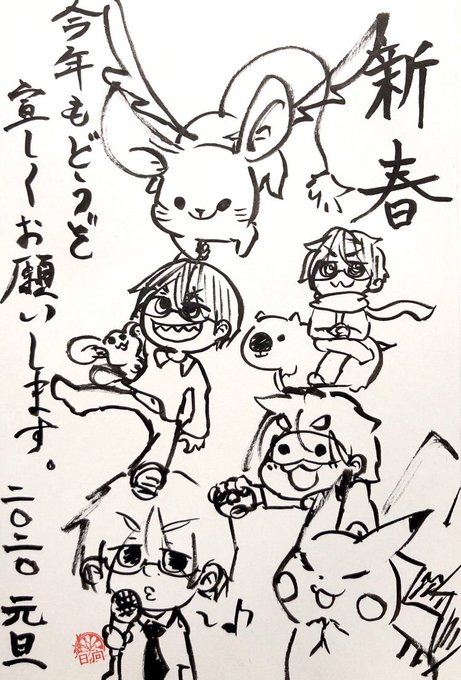 新春
今年もどうぞ
宜しくお願いします。
二〇二〇 元旦